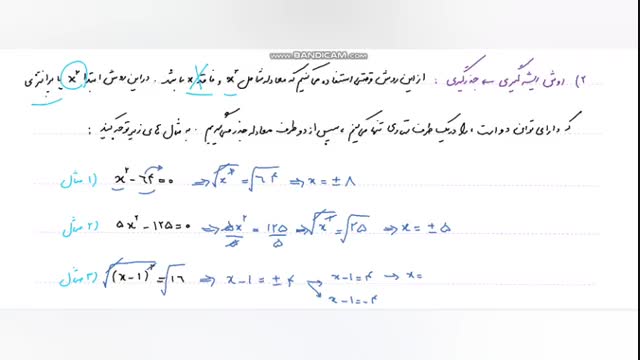 www.BANDICAM.com
۲) روش ریشه گیری یا جذرگیری : از این روش وقتی استفاده می کنیم که معادله شامل x² و فاقد x باشد . در این روش ابتدا x² یا پرانتزی
که دارای توان دو است ، را در یک طرف تساوی تنها می کنیم ، سپس از دو طرف معادله جذر می گیریم . به مثال های زیر توجه کنید :
مثال (۱ x² - ۶۴ = ۰ ⇒ √x² = √۶۴ ⇒ x = ± ۸
مثال (۲ ۵x² - ۱۲۵ = ۰ ⇒ ۵x²/۵ = ۱۲۵/۵ ⇒ √x² = √۲۵ ⇒ x = ± ۵
مثال (۳ √(x-۱)² = √۱۶ ⇒ x-۱ = ± ۴ → x-۱=۴ → x=
→ x-۱=-۴